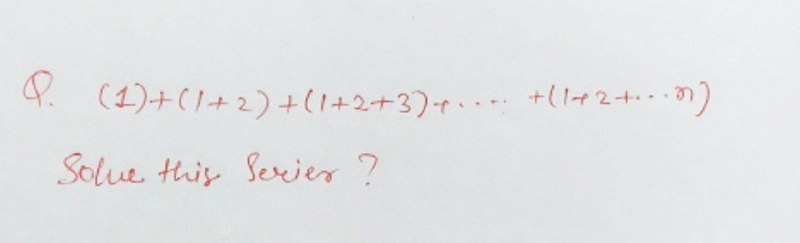 Q. (1)+(1+2)+(1+2+3)+..... +(1+2+...n)
Solve this Series ?